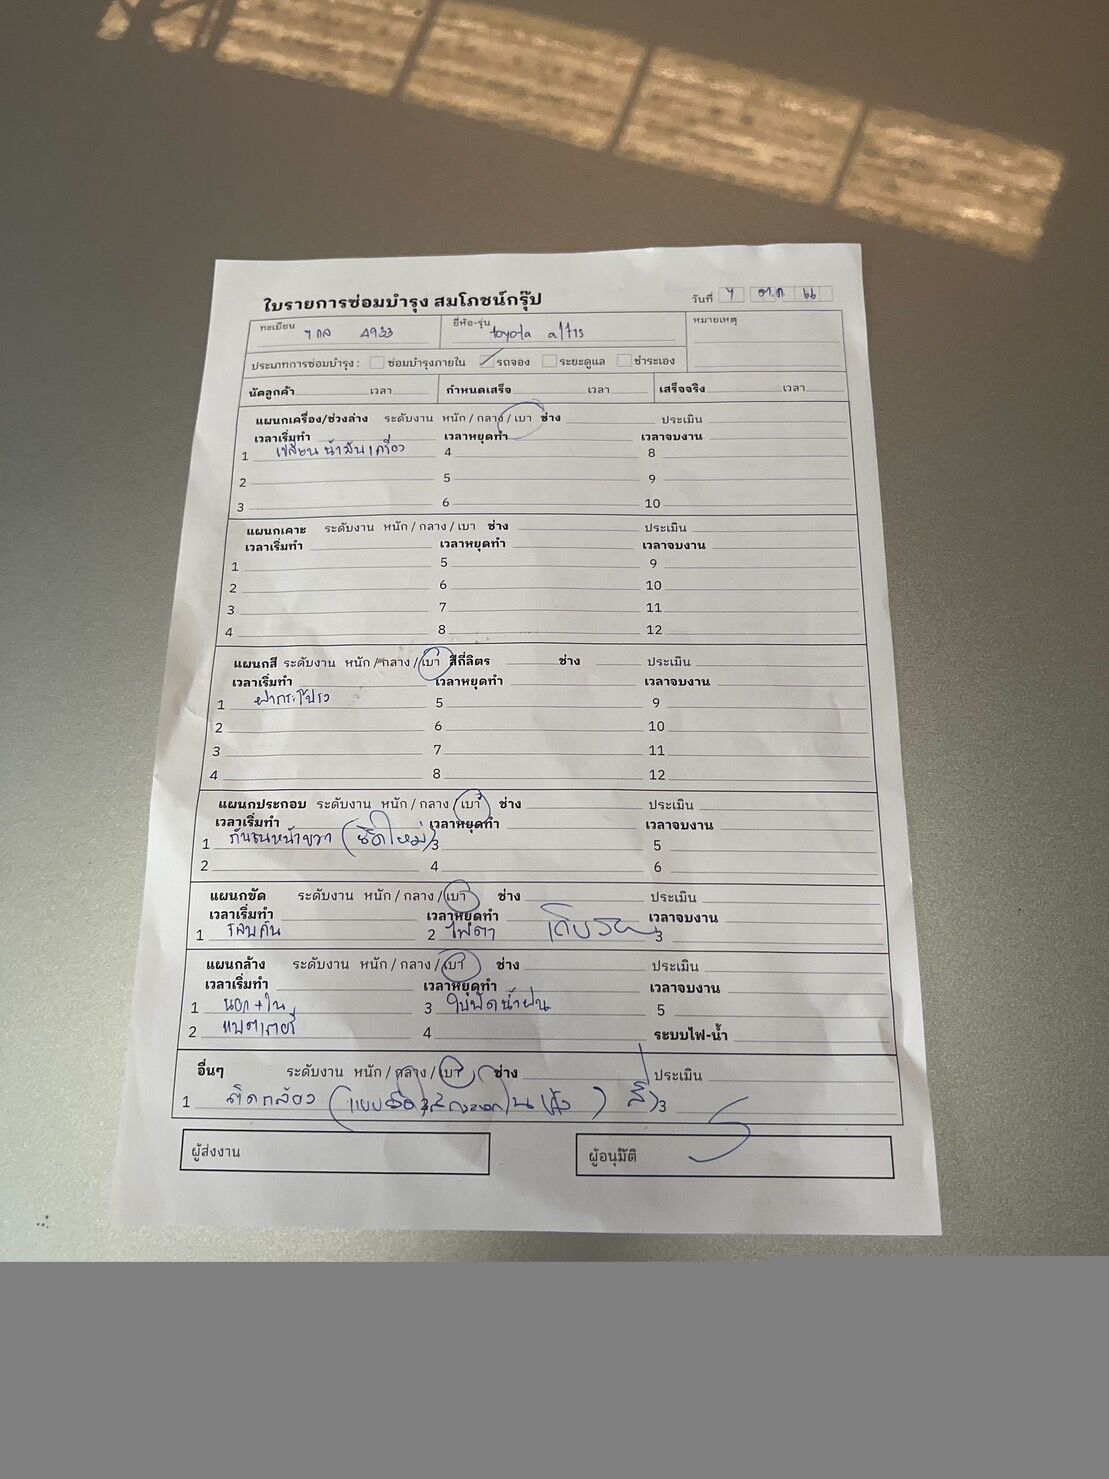 ใบรายการซ่อมบำรุง สมโภชน์กรุ๊ป
วันที่ 7 ต.ค 66
ทะเบียน 7 กล 4933 ยี่ห้อ-รุ่น toyota altis หมายเหตุ
ประเภทการซ่อมบำรุง : ซ่อมบำรุงภายใน รถจอง ระยะดูแล ชำระเอง
นัดลูกค้า เวลา กำหนดเสร็จ เวลา เสร็จจริง เวลา
แผนกเครื่อง/ช่วงล่าง ระดับงาน หนัก / กลาง / เบา ช่าง ประเมิน
เวลาเริ่มทำ เวลาหยุดทำ เวลาจบงาน
1 เปลี่ยนน้ำมันเครื่อง 4 8
2 5 9
3 6 10
แผนกเคาะ ระดับงาน หนัก / กลาง / เบา ช่าง ประเมิน
เวลาเริ่มทำ เวลาหยุดทำ เวลาจบงาน
1 5 9
2 6 10
3 7 11
4 8 12
แผนกสี ระดับงาน หนัก / กลาง / เบา สีกี่ลิตร ช่าง ประเมิน
เวลาเริ่มทำ เวลาหยุดทำ เวลาจบงาน
1 ฝากระโปรง 5 9
2 6 10
3 7 11
4 8 12
แผนกประกอบ ระดับงาน หนัก / กลาง / เบา ช่าง ประเมิน
เวลาเริ่มทำ เวลาหยุดทำ เวลาจบงาน
1 กันชนหน้าขวา (ยึดใหม่) 3 5
2 4 6
แผนกขัด ระดับงาน หนัก / กลาง / เบา ช่าง ประเมิน
เวลาเริ่มทำ เวลาหยุดทำ เวลาจบงาน
1 รอบคัน 2 ไฟตา 3
แผนกล้าง ระดับงาน หนัก / กลาง / เบา ช่าง ประเมิน
เวลาเริ่มทำ เวลาหยุดทำ เวลาจบงาน
1 นอก + ใน 3 ใบปัดน้ำฝน 5
2 แบตเตอรี่ 4 ระบบไฟ-น้ำ
อื่นๆ ระดับงาน หนัก / กลาง / เบา ช่าง ประเมิน
1 ติดกล้อง 3
ผู้ส่งงาน ผู้อนุมัติ